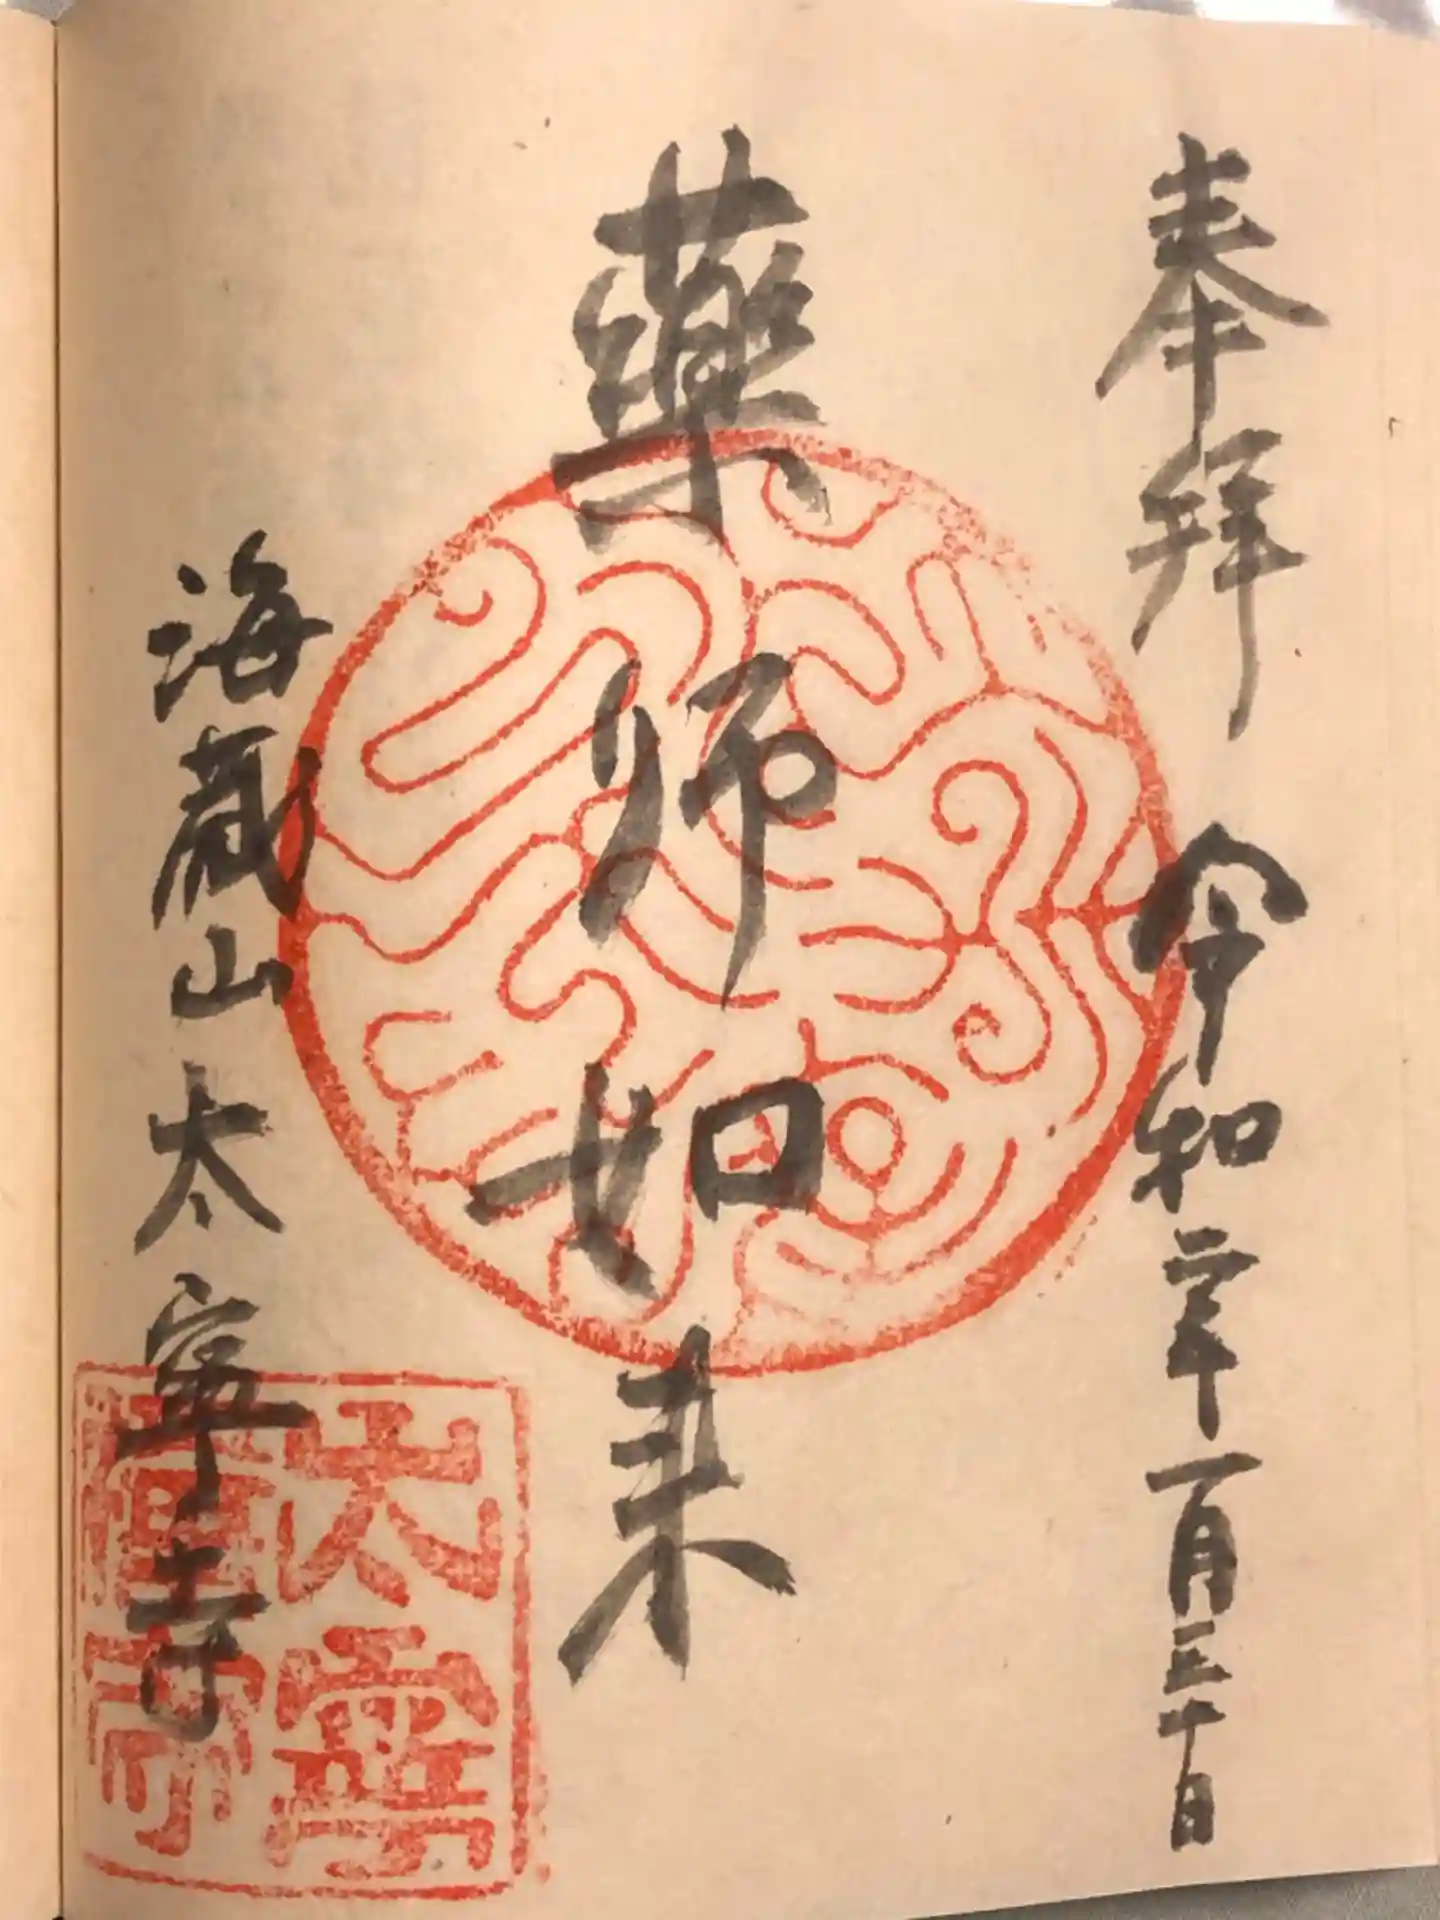 奉拝 令和二年一月三十日
薬師如来
海蔵山太寧寺
太寧